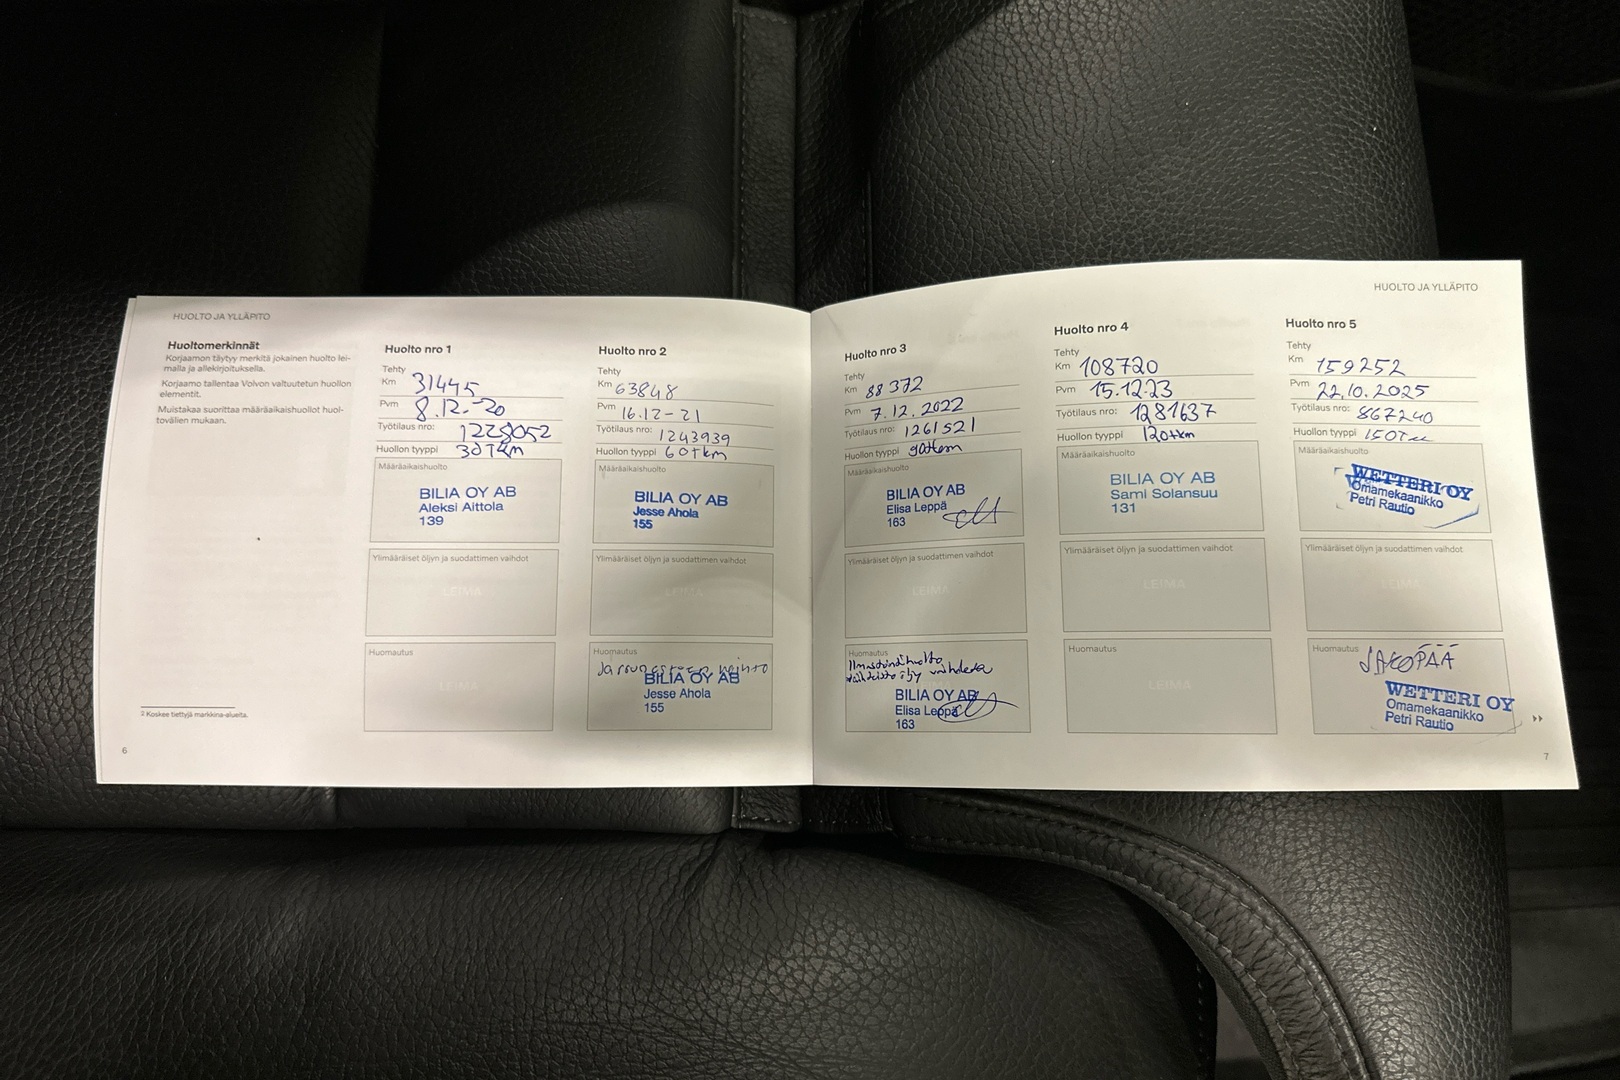 HUOLTO JA YLLÄPITO
Huoltomerkinnät
Korjaamon täytyy merkitä jokainen huolto lei-
malla ja allekirjoituksella.
Korjaamo tallentaa Volvon valtuutetun huollon
elementit.
Muistakaa suorittaa määräaikaishuollot huol-
tovälien mukaan.
2 Koskee tiettyjä markkina-alueita.
6
Huolto nro 1
Tehty
Km 31445
Pvm 8.12.-20
Työtilaus nro: 1228052
Huollon tyyppi 30Tkm
Määräaikaishuolto
BILIA OY AB
Aleksi Aittola
139
Ylimääräiset öljyn ja suodattimen vaihdot
LEIMA
Huomautus
LEIMA
Huolto nro 2
Tehty
Km 63848
Pvm 16.12-21
Työtilaus nro: 1243939
Huollon tyyppi 60tkm
Määräaikaishuolto
BILIA OY AB
Jesse Ahola
155
Ylimääräiset öljyn ja suodattimen vaihdot
LEIMA
Huomautus
BILIA OY AB
Jesse Ahola
155
HUOLTO JA YLLÄPITO
Huolto nro 3
Tehty
Km 88372
Pvm 7.12.2022
Työtilaus nro: 1261521
Huollon tyyppi 90tkm
Määräaikaishuolto
BILIA OY AB
Elisa Leppä
163
Ylimääräiset öljyn ja suodattimen vaihdot
LEIMA
Huomautus
Ilmastointihuolto
vaihteisto öljy vaihdettu
BILIA OY AB
Elisa Leppä
163
Huolto nro 4
Tehty
Km 108720
Pvm 15.12.23
Työtilaus nro: 1281637
Huollon tyyppi 120tkm
Määräaikaishuolto
BILIA OY AB
Sami Solansuu
131
Ylimääräiset öljyn ja suodattimen vaihdot
LEIMA
Huomautus
LEIMA
Huolto nro 5
Tehty
Km 159252
Pvm 22.10.2025
Työtilaus nro: 867240
Huollon tyyppi
Määräaikaishuolto
WETTERI OY
Omamekaanikko
Petri Rautio
Ylimääräiset öljyn ja suodattimen vaihdot
LEIMA
Huomautus JAKOPÄÄ
WETTERI OY
Omamekaanikko
Petri Rautio
7